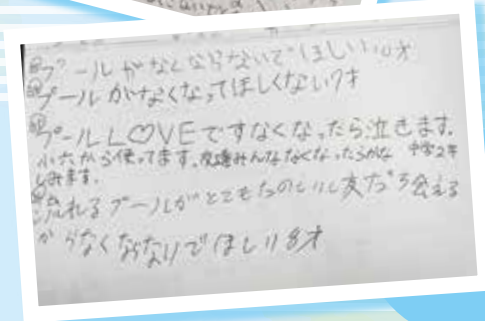 プールがなくならないでほしい10才
プールがなくなってほしくない7才
プールL♡VEですなくなったら泣きます。
小六から使ってます。友達みんななくなったらかな 中学2年
しみます。
プールがとてもたのしいし友だち会える
からなくならないでほしい8才